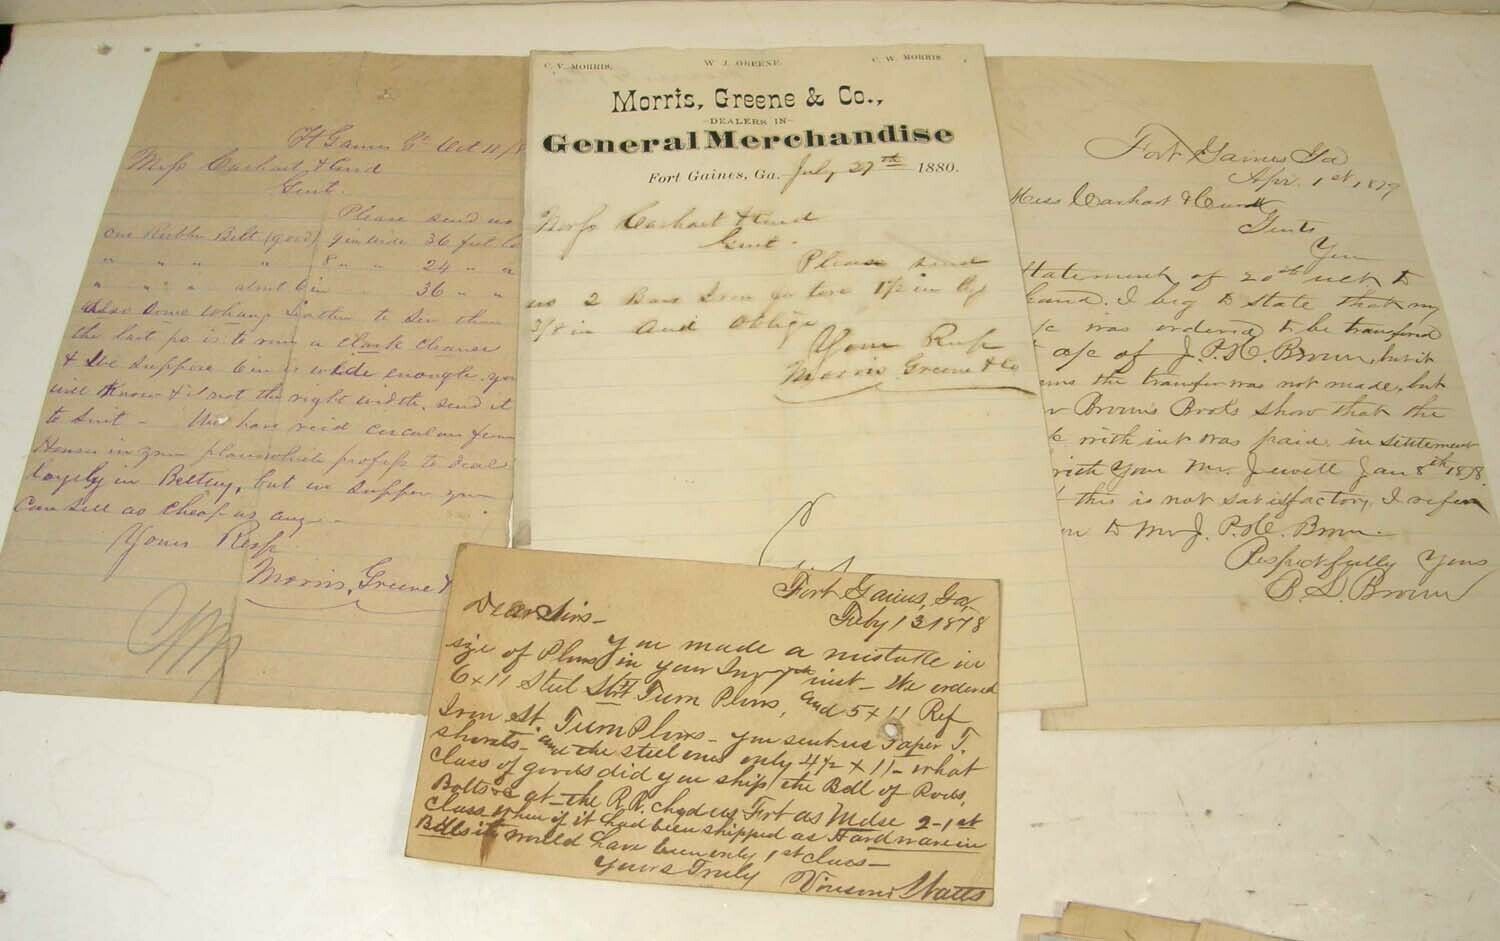 Ft Gaines Ga Oct 11/8
Mess Carhart & Curd
Gent.
Please send us
one Rubber Belt (good) 9 in wide 36 feet Lo
" " " " 8 " " 24 " "
" " " about 6 in 36 " "
Also Some whang Leather to Sew them
the last po is to run a clark cleaner
& We Suppose 6 in is wide enough. you
will Know & if not the right width, send it
to Suit - We have recd circulars from
Houses in your place which profess to deal
largely in Belting, but we suppose you
Can sell as cheap as any -
Yours Resp
Morris, Greene &
C. V. MORRIS. W. J. GREENE. C. W. MORRIS.
Morris, Greene & Co.,
DEALERS IN
General Merchandise
Fort Gaines, Ga. July 27th 1880.
Messs Carhart & Curd
Gent -
Please send
us 2 Bars Iron for tere 1 1/2 in by
3/8 in and oblige
Your Resp
Morris Greene & Co
Fort Gaines Ga
Apr. 1st, 1879
Mess Carhart & Curd
Gents
Your
Statement of 20th ult to
hand. I beg to state that my
/c was ordered to be transfered
a/c of J. P. H. Brown, but it
the transfer was not made, but
Brown's Books show that the
with int was paid in settlement
with Your Mr. Jewett Jan 8th 1878.
this is not satisfactory, I refer
you to Mr J. P. H. Brown.
Respectfully Yours
B. S. Brown
Fort Gaines, Ga,
Feby 13 1878
Dear Sirs -
You made a mistake in
size of Plows in your Inv inst - We ordered
6 x 11 Steel Strt Turn Plows, and 5 x 11 Ref
Iron St. Turn Plows - You sent us Taper T.
shovels - and the steel ones only 4 1/2 x 11 - what
class of goods did you ship the Bdl of Rods,
Bolts &c at - the R.R. chgd us Frt as Mdse 2 - 1st
Class when if it had been shipped as Hardware in
Bdls it would have been only 1st Class -
Yours Truly Vinson & Watts